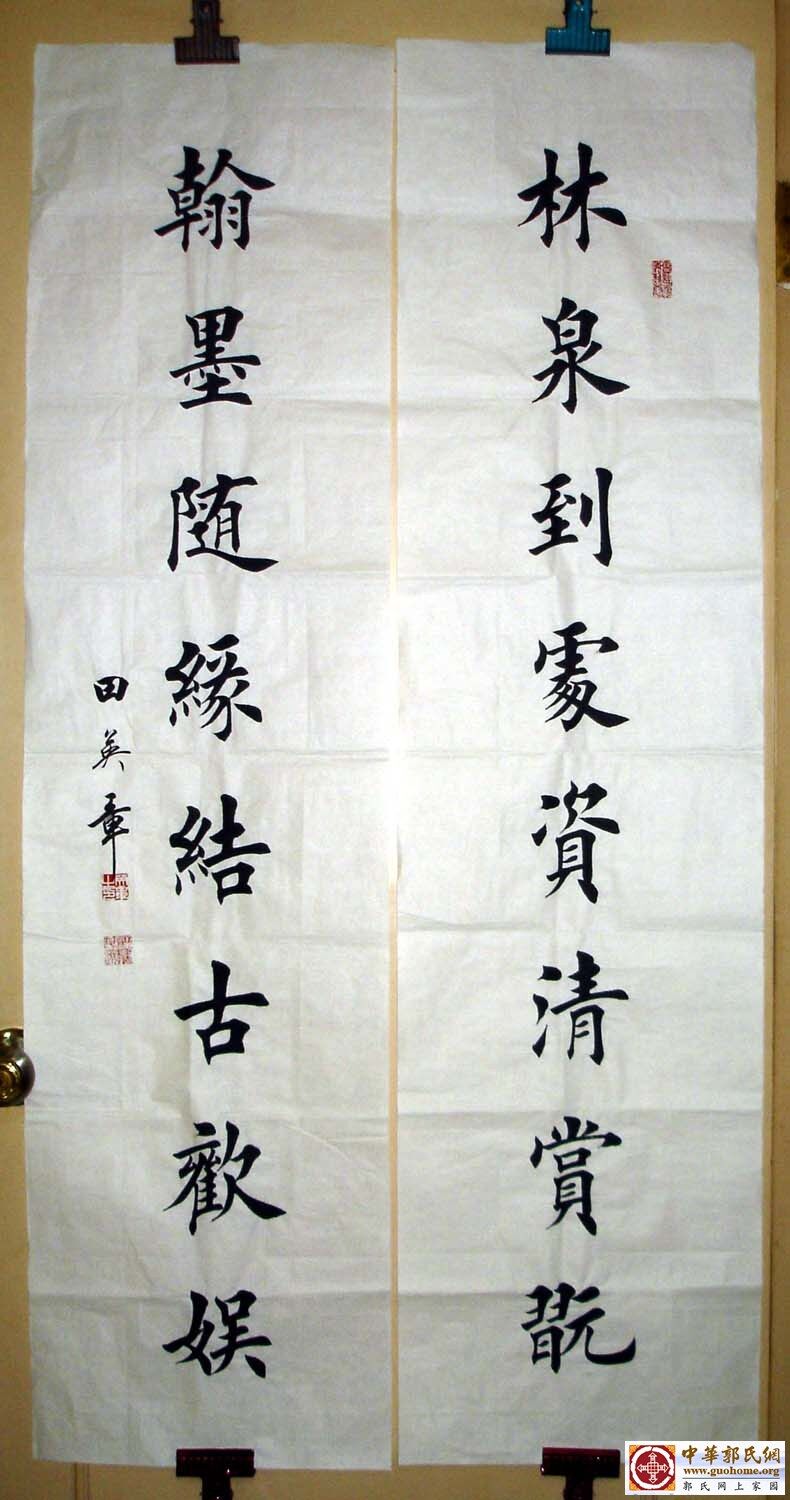 林泉到處資清賞翫
翰墨随緣結古歡娱
田英章
中華郭氏網
www.guohome.org
郭氏网上家园